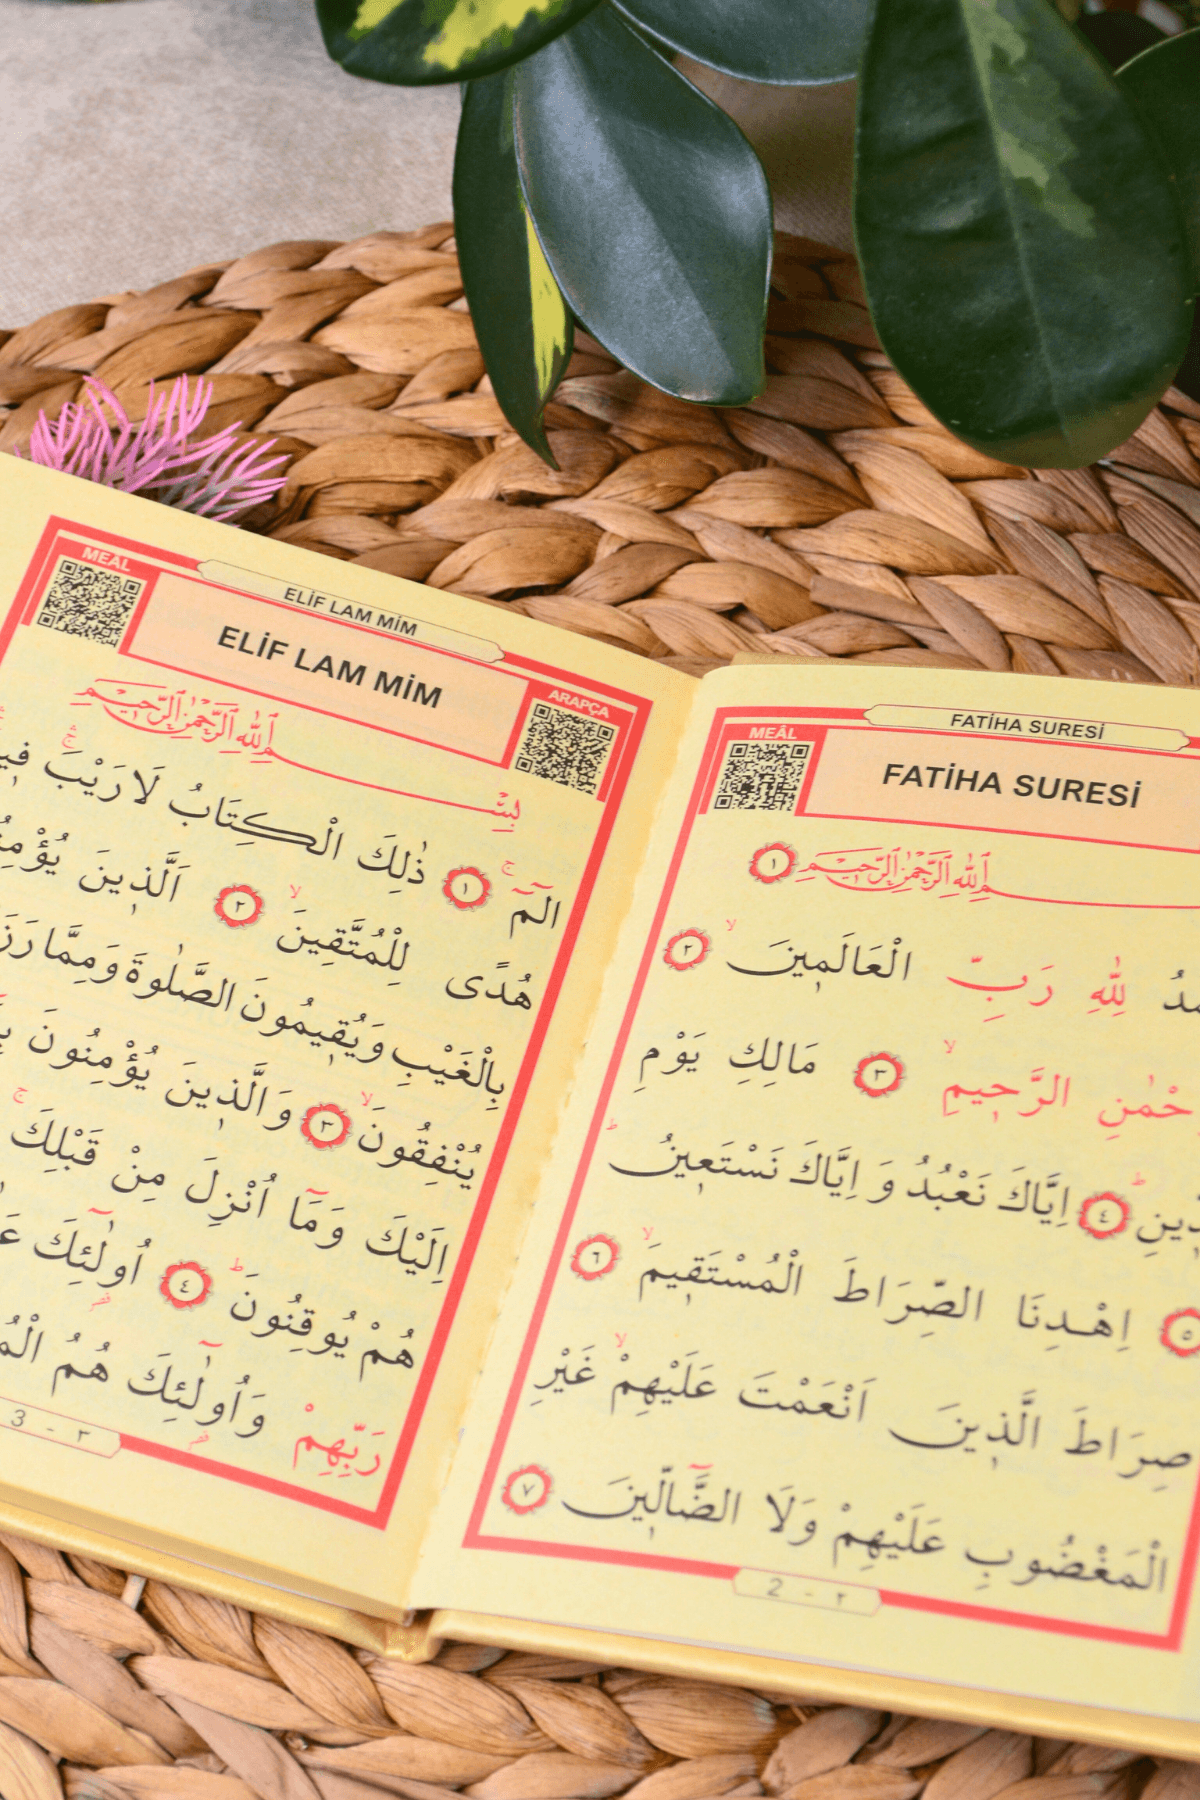 FATİHA SURESİ
MEÂL
FATİHA SURESİ
اللّٰهِ الرَّحْمٰنِ الرَّحِيمِ ١
لِلّٰهِ رَبِّ الْعَالَمِينَۙ ٢
الرَّحِيمِۙ ٣ مَالِكِ يَوْمِ
٤ اِيَّاكَ نَعْبُدُ وَ اِيَّاكَ نَسْتَعِينُۜ
٥ اِهْدِنَا الصِّرَاطَ الْمُسْتَقِيمَۙ ٦
صِرَاطَ الَّذِينَ اَنْعَمْتَ عَلَيْهِمْۙ غَيْرِ
الْمَغْضُوبِ عَلَيْهِمْ وَلَا الضَّٓالِّينَ ٧
2 - ٢
ELİF LAM MİM
MEAL
ELİF LAM MİM
ARAPÇA
بِسْمِ اللّٰهِ الرَّحْمٰنِ الرَّحِيمِ
الٓمٓۚ ١ ذٰلِكَ الْكِتَابُ لَا رَيْبَۚ
هُدًى لِلْمُتَّقِينَۙ ٢ اَلَّذِينَ
بِالْغَيْبِ وَيُقِيمُونَ الصَّلٰوةَ وَمِمَّا
يُنْفِقُونَۙ ٣ وَالَّذِينَ يُؤْمِنُونَ
اِلَيْكَ وَمَٓا اُنْزِلَ مِنْ قَبْلِكَۚ
هُمْ يُوقِنُونَۜ ٤ اُولٰٓئِكَ
رَبِّهِمْ وَاُولٰٓئِكَ هُمُ
3 - ٣